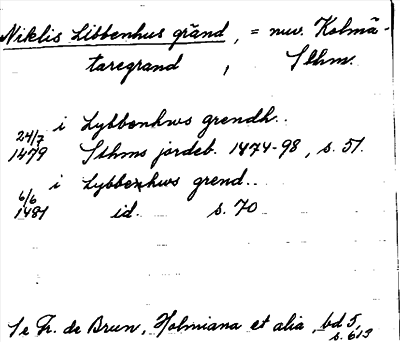 Niklis Libbenhus gränd, = nuv. Kolmä-
taregrand, Sthm.
i Lybbenhws grendh..
24/7
1479 Sthms jordeb. 1474-98, s. 51.
i Lybbenhws grend..
6/6
1481 id. s. 70
Se Fr. de Brun, Holmiana et alia, bd 5,
s. 613